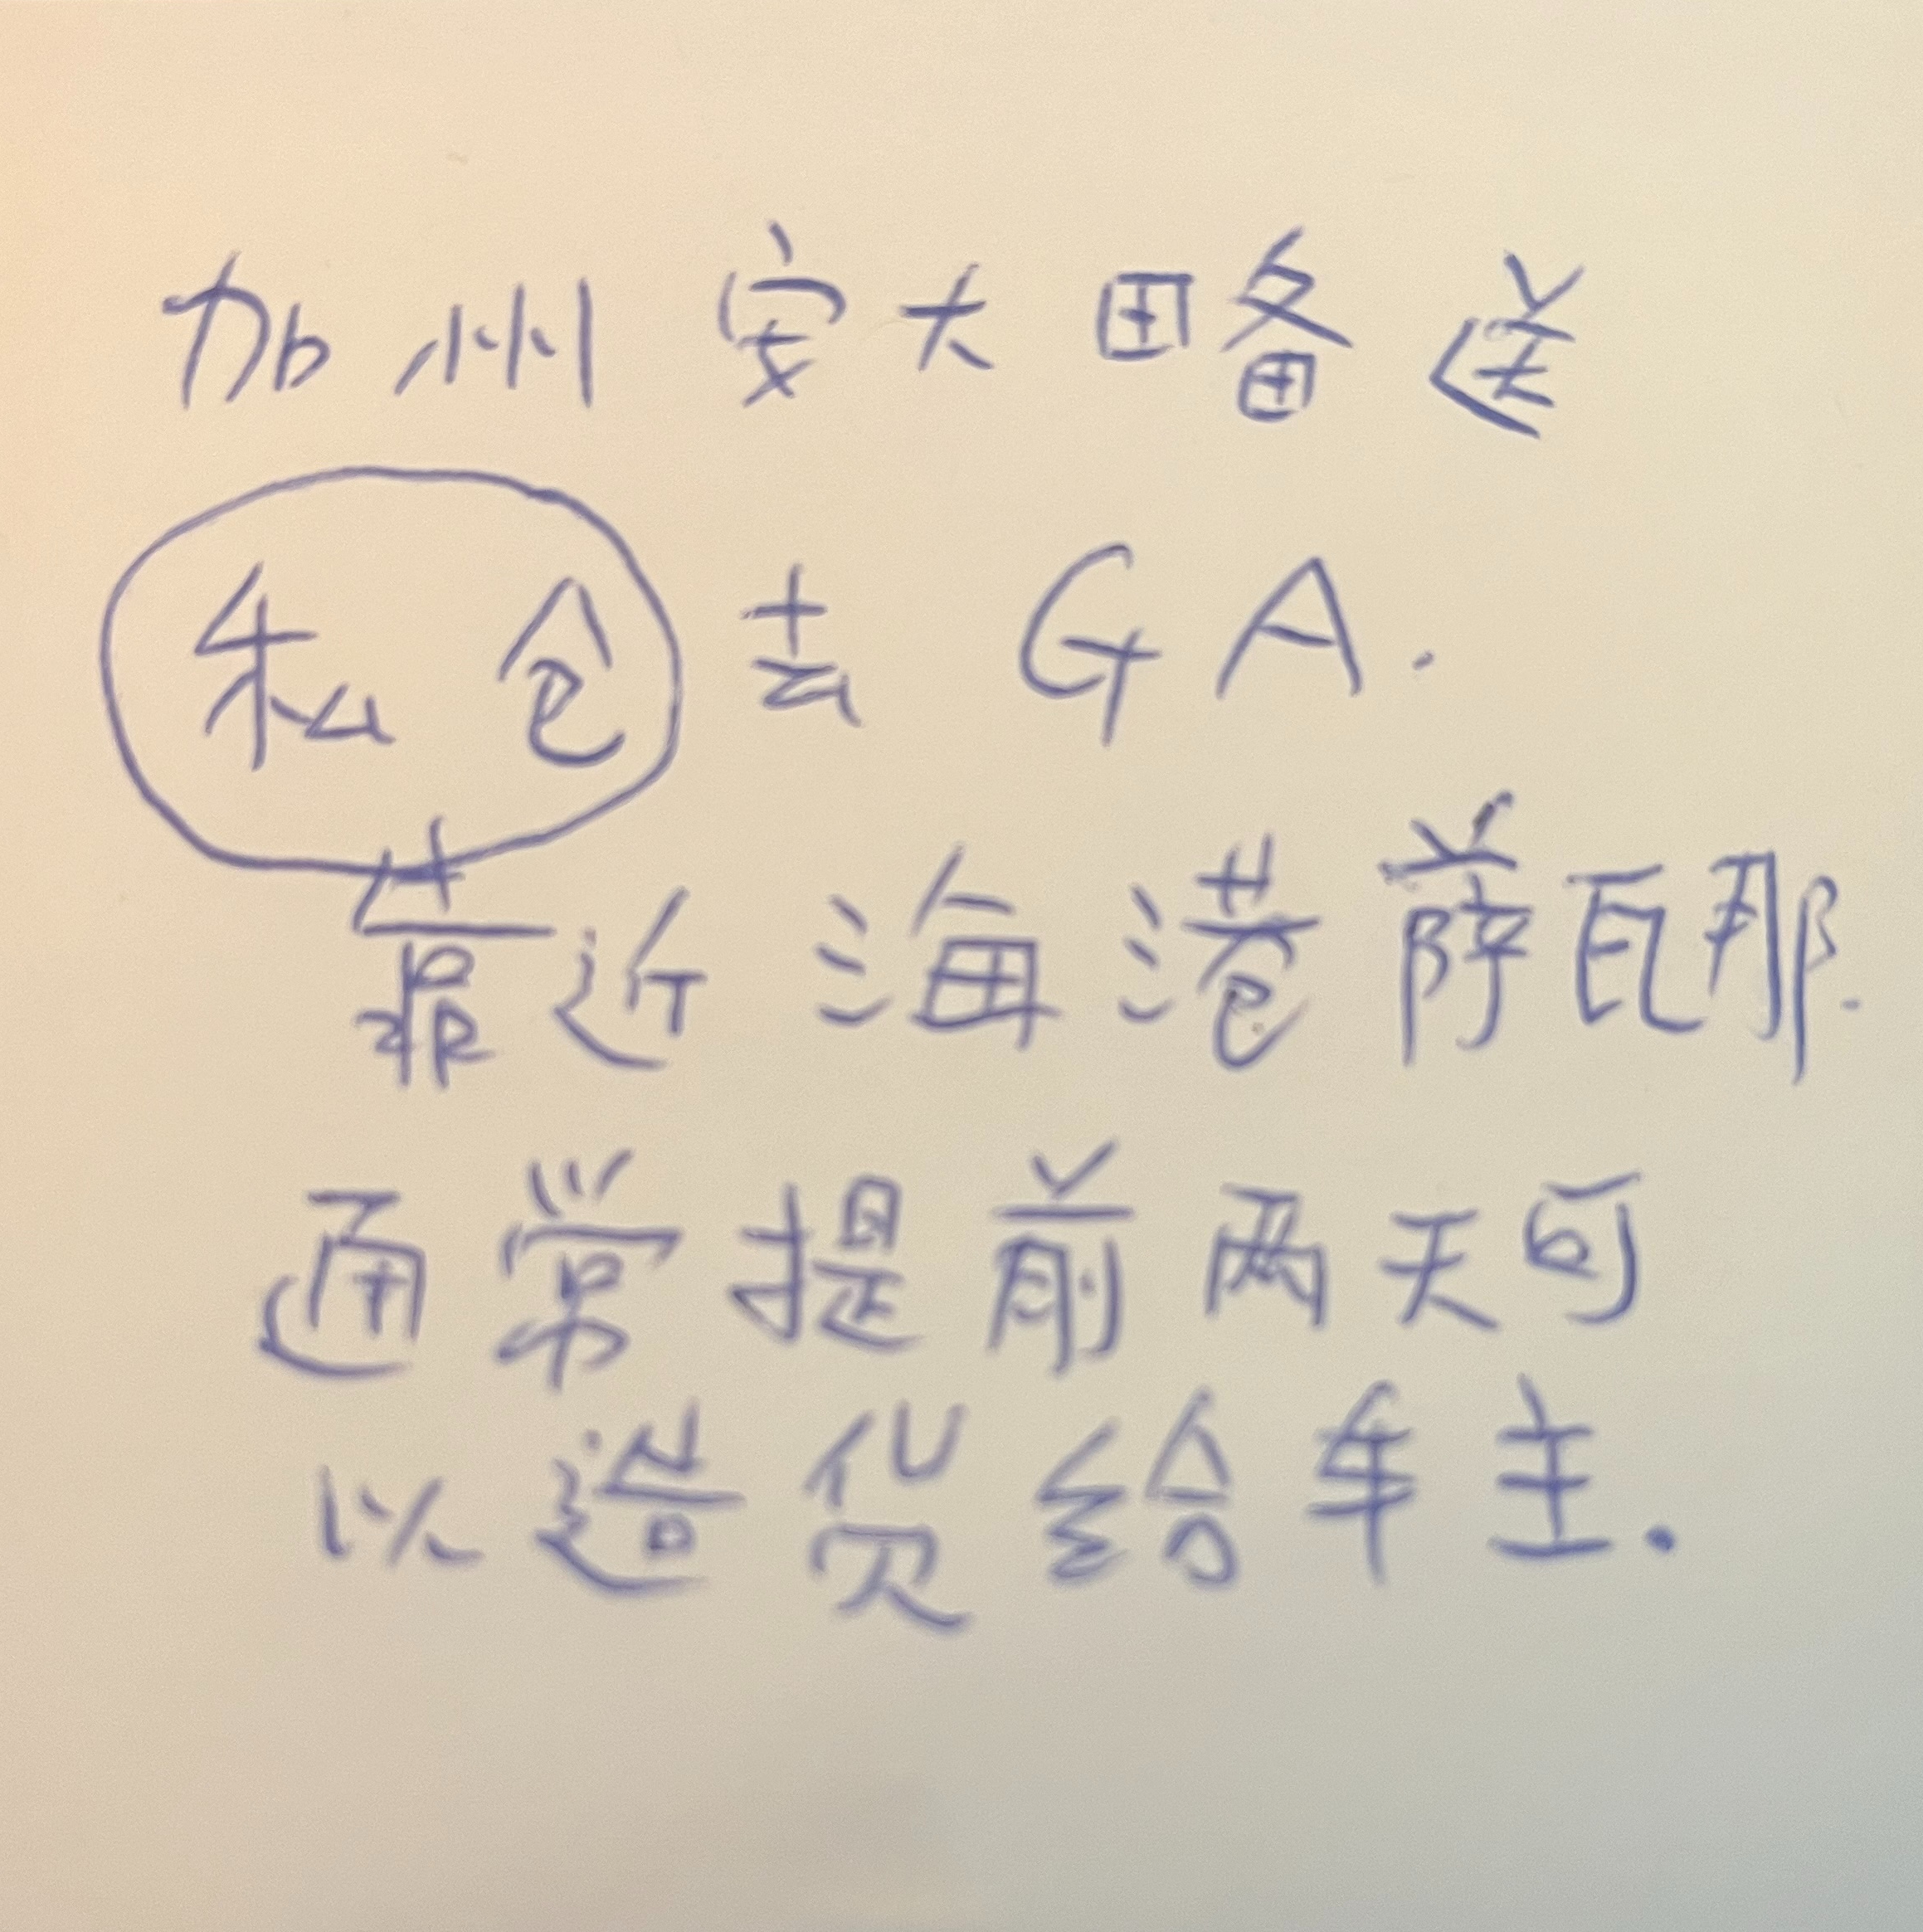 加州安大略送
私仓去 GA.
靠近海港萨瓦那.
通常提前两天可
以造货给车主.